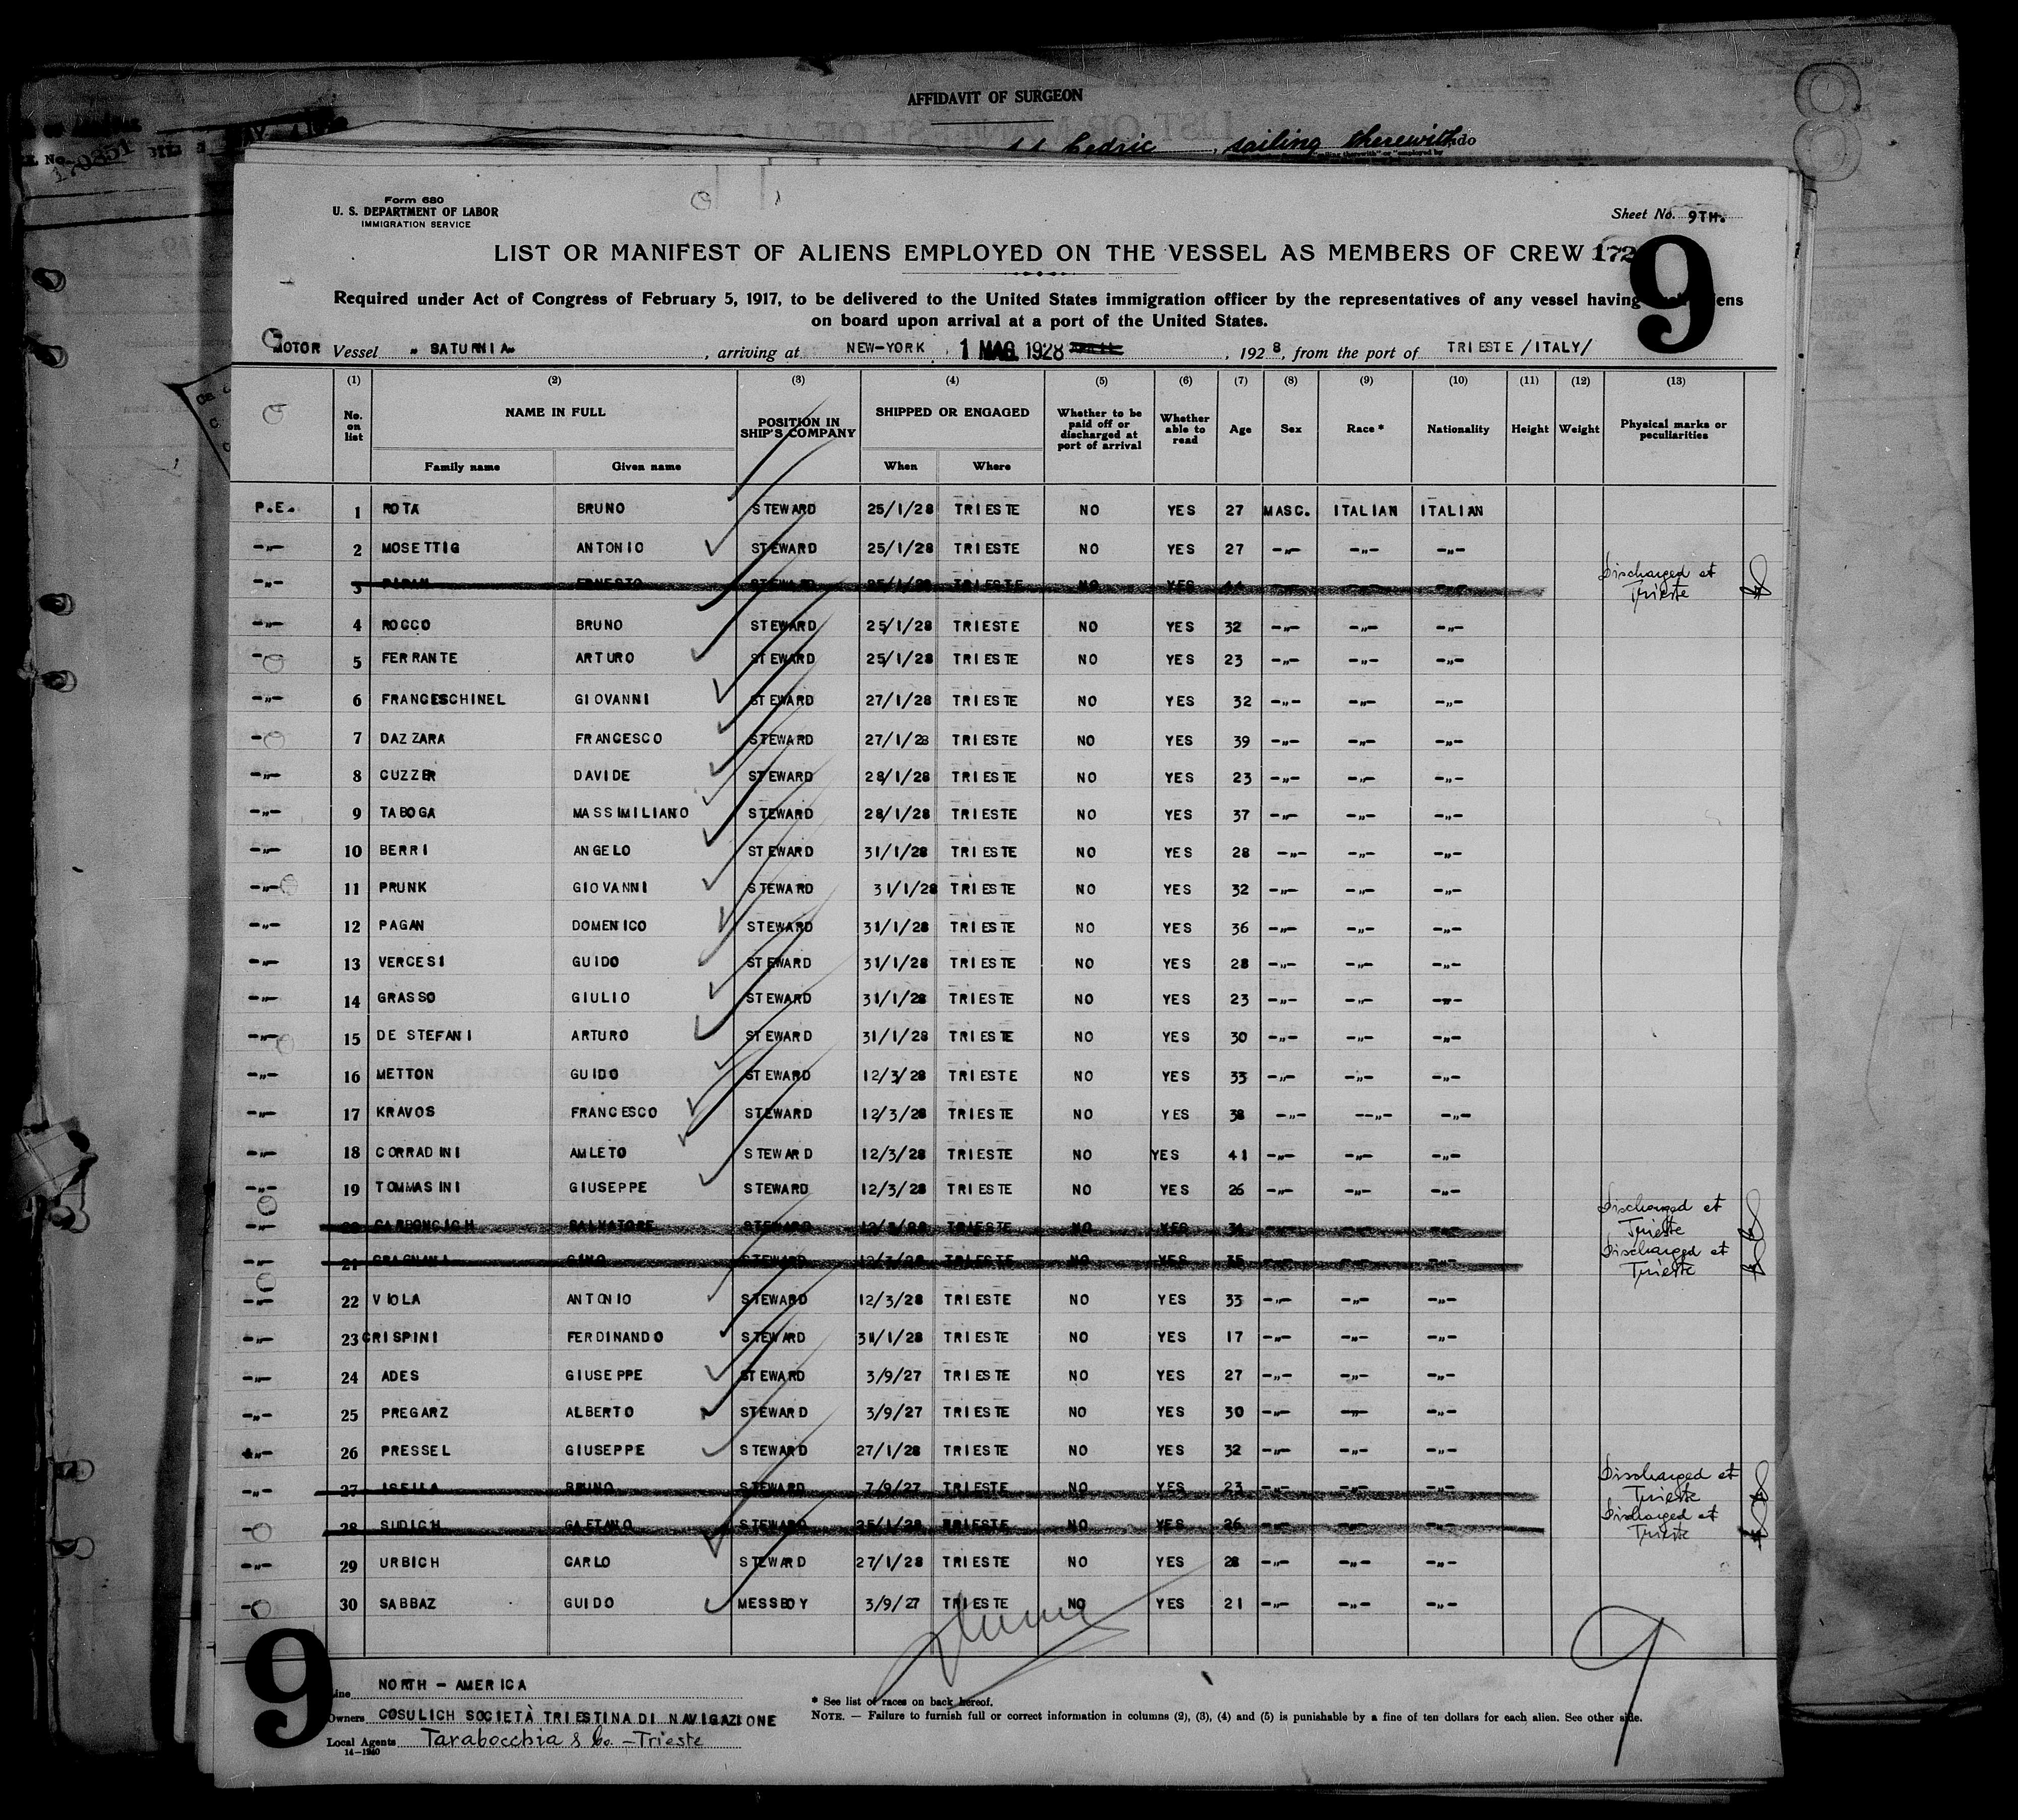 AFFIDAVIT OF SURGEON
Cedric , sailing therewith, do
Form 680
U. S. DEPARTMENT OF LABOR
IMMIGRATION SERVICE
Sheet No. 9TH.
LIST OR MANIFEST OF ALIENS EMPLOYED ON THE VESSEL AS MEMBERS OF CREW 172
9
Required under Act of Congress of February 5, 1917, to be delivered to the United States immigration officer by the representatives of any vessel having
on board upon arrival at a port of the United States.
MOTOR Vessel „ SATURNIA„ , arriving at NEW-YORK 1 MAG. 1928 , 192 8, from the port of TRIESTE /ITALY/
(1) (2) (3) (4) (5) (6) (7) (8) (9) (10) (11) (12) (13)
No. on list NAME IN FULL POSITION IN SHIP'S COMPANY SHIPPED OR ENGAGED Whether to be paid off or discharged at port of arrival Whether able to read Age Sex Race * Nationality Height Weight Physical marks or peculiarities
Family name Given name When Where
P.E. 1 ROTA BRUNO STEWARD 25/1/28 TRIESTE NO YES 27 MASC. ITALIAN ITALIAN
-„- 2 MOSETTIG ANTONIO STEWARD 25/1/28 TRIESTE NO YES 27 -„- -„- -„-
-„- 3 ERNESTO STEWARD 25/1/28 TRIESTE NO YES 44 -„- -„- -„- Discharged at Trieste
-„- 4 ROCCO BRUNO STEWARD 25/1/28 TRIESTE NO YES 32 -„- -„- -„-
-„- 5 FERRANTE ARTURO STEWARD 25/1/28 TRIESTE NO YES 23 -„- -„- -„-
-„- 6 FRANCESCHINEL GIOVANNI STEWARD 27/1/28 TRIESTE NO YES 32 -„- -„- -„-
-„- 7 DAZZARA FRANCESCO STEWARD 27/1/28 TRIESTE NO YES 39 -„- -„- -„-
-„- 8 CUZZER DAVIDE STEWARD 28/1/28 TRIESTE NO YES 23 -„- -„- -„-
-„- 9 TABOGA MASSIMILIANO STEWARD 28/1/28 TRIESTE NO YES 37 -„- -„- -„-
-„- 10 BERRI ANGELO STEWARD 31/1/28 TRIESTE NO YES 28 -„- -„- -„-
-„- 11 PRUNK GIOVANNI STEWARD 31/1/28 TRIESTE NO YES 32 -„- -„- -„-
-„- 12 PAGAN DOMENICO STEWARD 31/1/28 TRIESTE NO YES 36 -„- -„- -„-
-„- 13 VERCESI GUIDO STEWARD 31/1/28 TRIESTE NO YES 28 -„- -„- -„-
-„- 14 GRASSO GIULIO STEWARD 31/1/28 TRIESTE NO YES 23 -„- -„- -„-
-„- 15 DE STEFANI ARTURO STEWARD 31/1/28 TRIESTE NO YES 30 -„- -„- -„-
-„- 16 METTON GUIDO STEWARD 12/3/28 TRIESTE NO YES 33 -„- -„- -„-
-„- 17 KRAVOS FRANCESCO STEWARD 12/3/28 TRIESTE NO YES 38 -„- --„- -„-
-„- 18 CORRADINI AMLETO STEWARD 12/3/28 TRIESTE NO YES 41 -„- -„- -„-
-„- 19 TOMMASINI GIUSEPPE STEWARD 12/3/28 TRIESTE NO YES 26 -„- -„- -„-
-„- 20 CARBONCICH SALVATORE STEWARD 12/3/28 TRIESTE NO YES 34 -„- -„- -„- Discharged at Trieste
-„- 21 GRAGNANI GINO STEWARD 12/3/28 TRIESTE NO YES 35 -„- -„- -„- Discharged at Trieste
-„- 22 VIOLA ANTONIO STEWARD 12/3/28 TRIESTE NO YES 33 -„- -„- -„-
-„- 23 CRISPINI FERDINANDO STEWARD 31/1/28 TRIESTE NO YES 17 -„- -„- -„-
-„- 24 ADES GIUSEPPE STEWARD 3/9/27 TRIESTE NO YES 27 -„- -„- -„-
-„- 25 PREGARZ ALBERTO STEWARD 3/9/27 TRIESTE NO YES 30 -„- -„- -„-
-„- 26 PRESSEL GIUSEPPE STEWARD 27/1/28 TRIESTE NO YES 32 -„- -„- -„-
-„- 27 BRUNO STEWARD 7/9/27 TRIESTE NO YES 23 -„- -„- -„- Discharged at Trieste
-„- 28 SUDICH GAETANO STEWARD 25/1/28 TRIESTE NO YES 26 -„- -„- -„- Discharged at Trieste
-„- 29 URBICH CARLO STEWARD 27/1/28 TRIESTE NO YES 28 -„- -„- -„-
-„- 30 SABBAZ GUIDO MESSBOY 3/9/27 TRIESTE NO YES 21 -„- -„- -„-
9
9
Line NORTH - AMERICA
Owners COSULICH SOCIETÀ TRIESTINA DI NAVIGAZIONE
Local Agents Tarabocchia & Co. - Trieste
14-1240
* See list of races on back hereof.
NOTE. — Failure to furnish full or correct information in columns (2), (3), (4) and (5) is punishable by a fine of ten dollars for each alien. See other side.